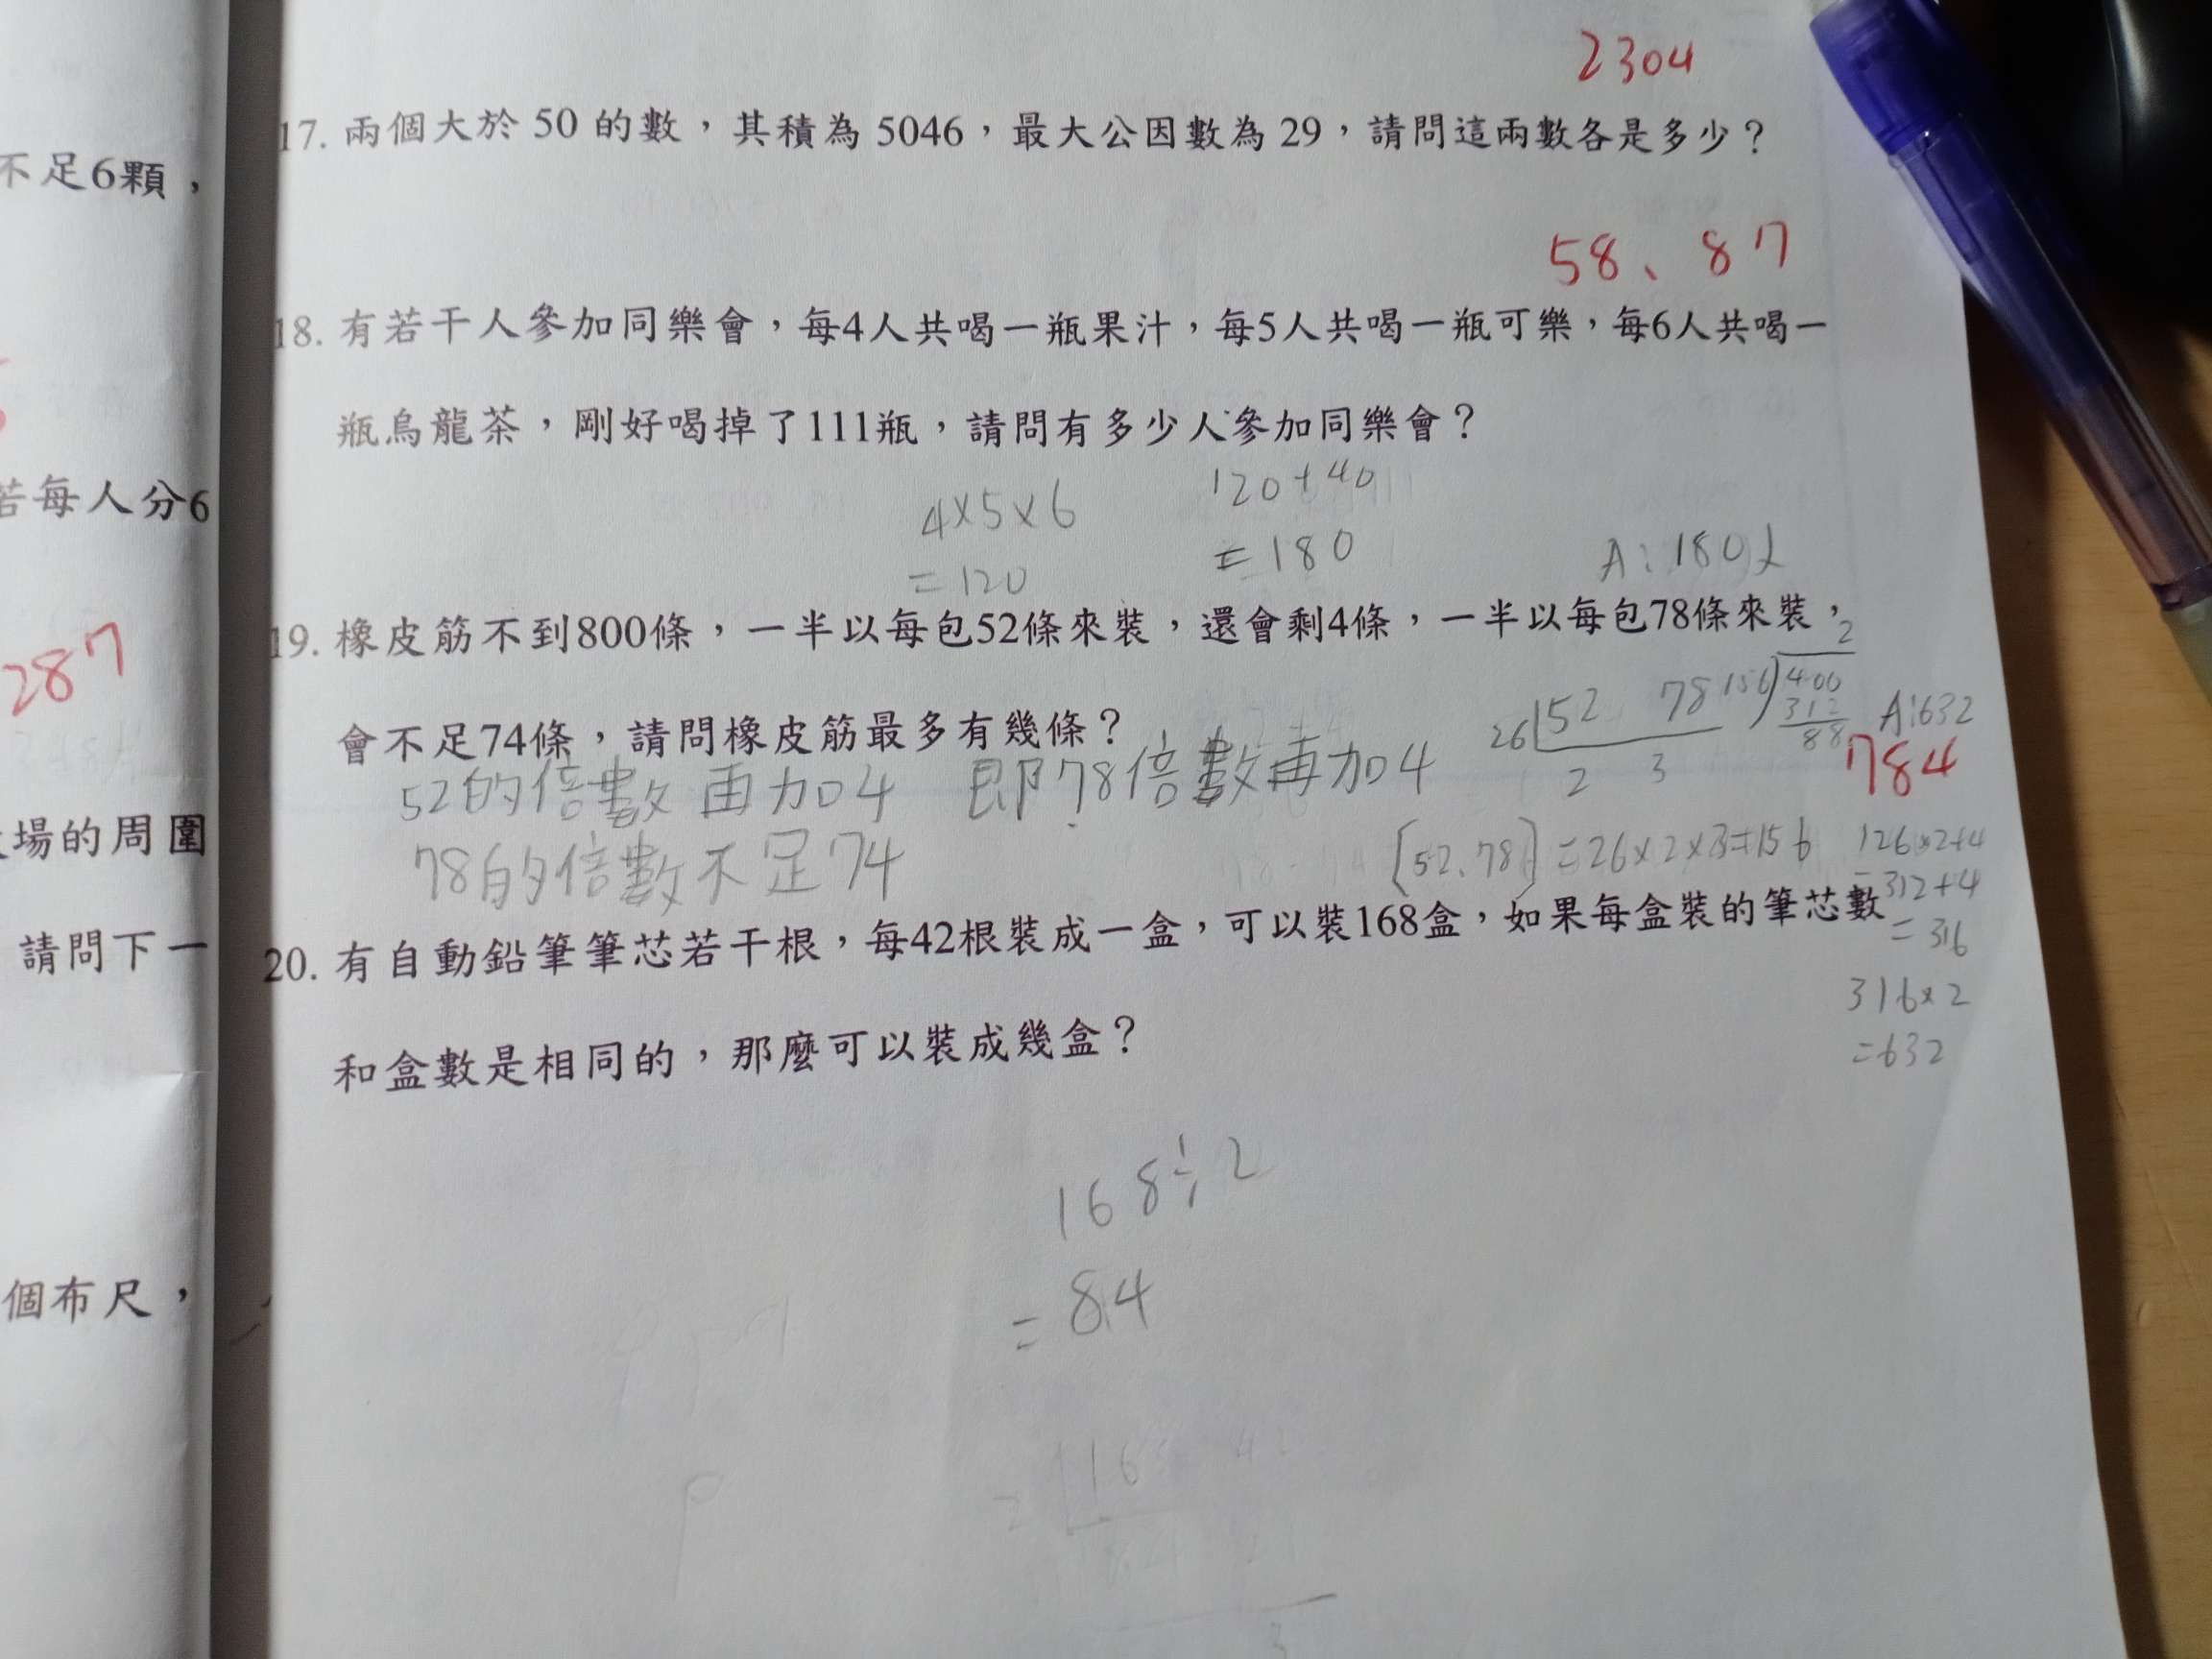 2304
17. 兩個大於 50 的數，其積為 5046，最大公因數為 29，請問這兩數各是多少？
58、87
18. 有若干人參加同樂會，每4人共喝一瓶果汁，每5人共喝一瓶可樂，每6人共喝一
瓶烏龍茶，剛好喝掉了111瓶，請問有多少人參加同樂會？
4×5×6
=120
120+40
=180
A:180人
19. 橡皮筋不到800條，一半以每包52條來裝，還會剩4條，一半以每包78條來裝，
會不足74條，請問橡皮筋最多有幾條？
26 52 78
2 3
2
156 400
312
88
A:632
784
52的倍數再加4 即78倍數再加4
78的倍數不足74
[52、78]=26×2×3=156
126×2+4
=312+4
=316
316×2
=632
20. 有自動鉛筆筆芯若干根，每42根裝成一盒，可以裝168盒，如果每盒裝的筆芯數
和盒數是相同的，那麼可以裝成幾盒？
168÷2
=84
不足6顆，
若每人分6
287
場的周圍
請問下一
個布尺，